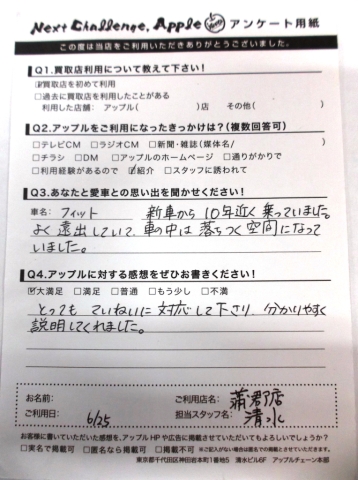 Next Challenge, Apple アンケート用紙
この度は当店をご利用いただきありがとうございました。
Q1.買取店利用について教えて下さい!
☑買取店を初めて利用
□過去に買取店を利用したことがある
利用した店舗: アップル( )店 その他( )
Q2.アップルをご利用になったきっかけは?(複数回答可)
□テレビCM □ラジオCM □新聞・雑誌(媒体名/ )
□チラシ □DM □アップルのホームページ □通りがかりで
□利用経験があるので ☑紹介 □スタッフに誘われて
Q3.あなたと愛車との思い出を聞かせください!
車名: フィット 新車から10年近く乗っていました。
よく遠出していて、車の中は落ちつく空間になって
いました。
Q4.アップルに対する感想をぜひお書きください!
☑大満足 □満足 □普通 □もう少し □不満
とってもていねいに対応して下さり、分かりやすく
説明してくれました。
お名前: ご利用店名: 蒲郡店
ご利用日: 6/25 担当スタッフ名: 清水
お客様に書いていただいた感想を、アップルHPや広告に掲載させていただいてもよろしいでしょうか?
□実名で掲載可 □匿名なら掲載可 □掲載不可 ※ご記入がない場合は匿名での掲載とさせていただきます。
東京都千代田区神田岩本町1番地5 清水ビル6F アップルチェーン本部